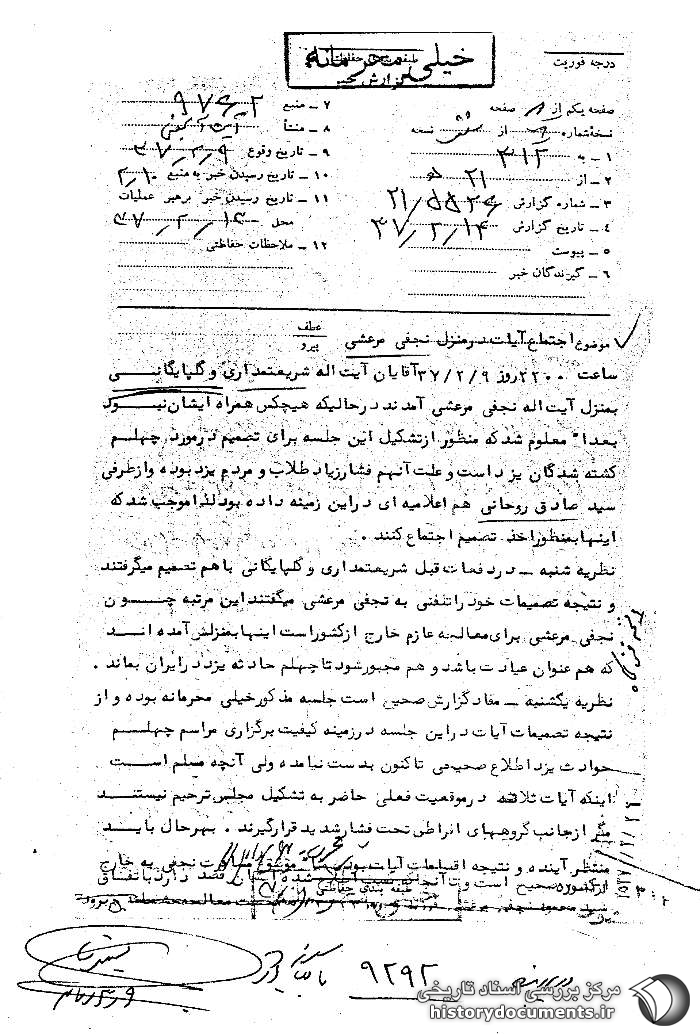 خیلی محرمانه
طبقه بندی حفاظتی
گزارش خبر
درجه فوریت
صفحه یکم از صفحه
نسخه شماره از نسخه
۱ ـ به ۳۱۲
۲ ـ از ۲۱
۳ ـ شماره گزارش
۴ ـ تاریخ گزارش ۳۷/۲/۱۴
۵ ـ پیوست
۶ ـ گیرندگان خبر
۷ ـ منبع
۸ ـ منشأ
۹ ـ تاریخ وقوع ۳۷/۲/۹
۱۰ ـ تاریخ رسیدن خبر به منبع ۲/۱۰
۱۱ ـ تاریخ رسیدن خبر برهبر عملیات
محل
۱۲ ـ ملاحظات حفاظتی
موضوع اجتماع آیات در منزل نجفی مرعشی
عطف
پیرو
ساعت ۲۲۰۰ روز ۳۷/۲/۹ آقایان آیت اله شریعتمداری و گلپایگانی
بمنزل آیت اله نجفی مرعشی آمدند در حالیکه هیچکس همراه ایشان نبود
بعدا" معلوم شد که منظور از تشکیل این جلسه برای تصمیم در مورد چهلم
کشته شدگان یزد است و علت آنهم فشار زیاد طلاب و مردم یزد بوده و از طرفی
سید صادق روحانی هم اعلامیه ای در این زمینه داده بود لذا موجب شد که
اینها بمنظور اخذ تصمیم اجتماع کنند .
نظریه شنبه ـ در دفعات قبل شریعتمداری و گلپایگانی با هم تصمیم میگرفتند
و نتیجه تصمیمات خود را تلفنی به نجفی مرعشی میگفتند این مرتبه چون
نجفی مرعشی برای معالجه عازم خارج از کشور است اینها بمنزلش آمده اند
که هم عنوان عیادت باشد و هم مجبور شود تا چهلم حادثه یزد در ایران بماند .
نظریه یکشنبه ـ مفاد گزارش صحیح است جلسه مذکور خیلی محرمانه بوده و از
نتیجه تصمیمات آیات در این جلسه در زمینه کیفیت برگزاری مراسم چهلم
حوادث یزد اطلاع صحیحی تاکنون بدست نیامده ولی آنچه مسلم است
اینکه آیات ثلاثه در موقعیت فعلی حاضر به تشکیل مجلس ترحیم نیستند
مگر از جانب گروههای افراطی تحت فشار شدید قرار گیرند . بهرحال باید
منتظر آینده و نتیجه اقدامات آیات بود. مسافرت نجفی به خارج
از کشور صحیح است و تا آنجا شده قصد دارد باتفاق
سید محمود نجفی معالجه برود
طبقه بندی حفاظتی
۹۲۹۲
مرکز بررسی اسناد تاریخی
historydocuments.ir